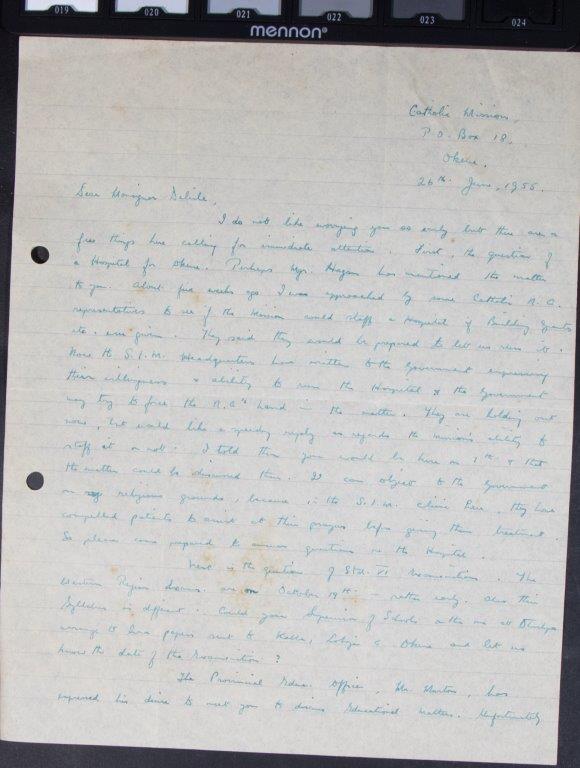 019 020 021 022 023 024
mennon®
Catholic Mission,
P.O. Box 18,
Okene,
26th June, 1955.
Dear Monsignor Delisle,
I do not like worrying you so early but there are a
few things here calling for immediate attention. First, the question of
a Hospital for Okene. Perhaps Mgr. Hagan has mentioned the matter
to you. About five weeks ago I was approached by some Catholic N.A.
representatives to see if the Mission could staff a Hospital if Building Grants
etc. were given. They said they would be prepared to let us run it.
Now the S.I.M. Headquarters have written to the Government expressing
their willingness & ability to run the Hospital & the Government
may try to force the N.A's hand in the matter. They are holding out
now, but would like a speedy reply as regards the Mission's ability to
staff it or not. I told them you would be here on & that
the matter could be discussed then. can object to the Government
on religious grounds, because, in the S.I.M. Clinic here, they have
compelled patients to assist at their prayers before giving them treatment.
So please come prepared to answer questions re the Hospital.
Next is the question of Std. VI Examinations. The
Western Region exams. are on October 19th - rather early. Also their
Syllabus is different. Could your Supervisor of Schools or the one at Oturkpo
arrange to have papers sent to Kabba, Lokoja & Okene and let us
know the date of the Examination?
The Provincial Educ. Officer, Mr. has
expressed his desire to meet you to discuss Educational matters. Unfortunately